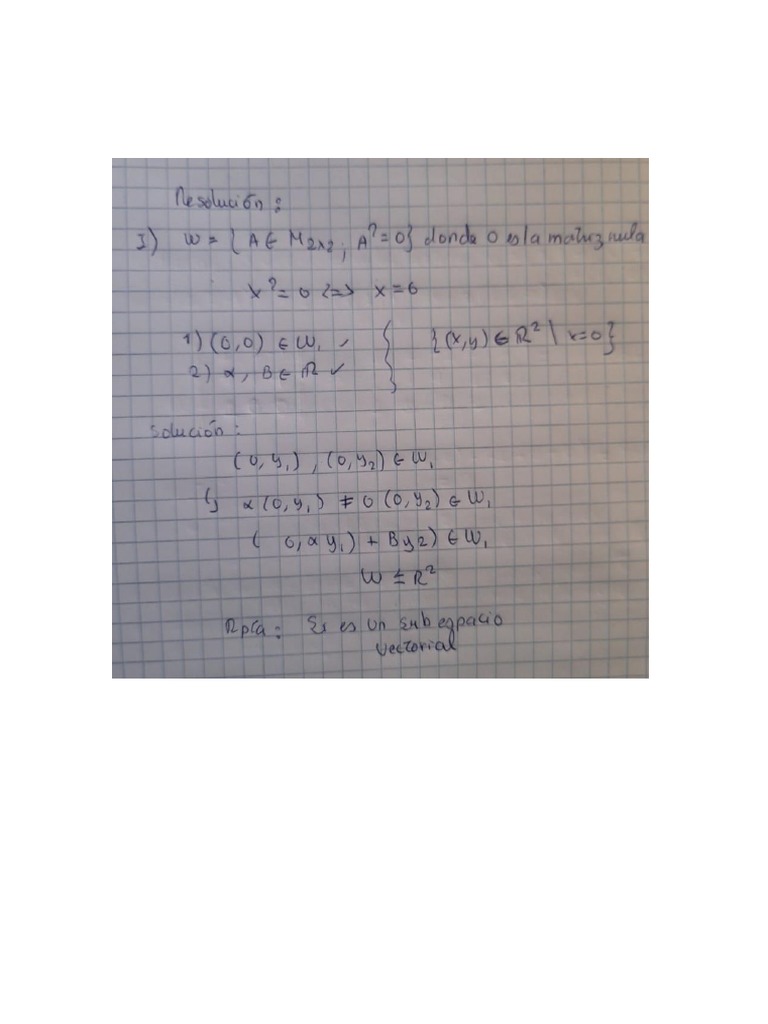 Resolución:
I) W = { A ∈ M2x2 ; A² = 0} donde 0 es la matriz nula
x² = 0 <=> x = 0
1) (0,0) ∈ W₁ ✓ { {(x,y) ∈ R² | x=0}
2) α, B ∈ R ✓
solución:
(0, y₁) , (0, y₂) ∈ W₁
α (0, y₁) ≠ 0 (0, y₂) ∈ W₁
( 0, α y₁) + B y2) ∈ W₁
W ≤ R²
Rpta: Si es un sub espacio
vectorial